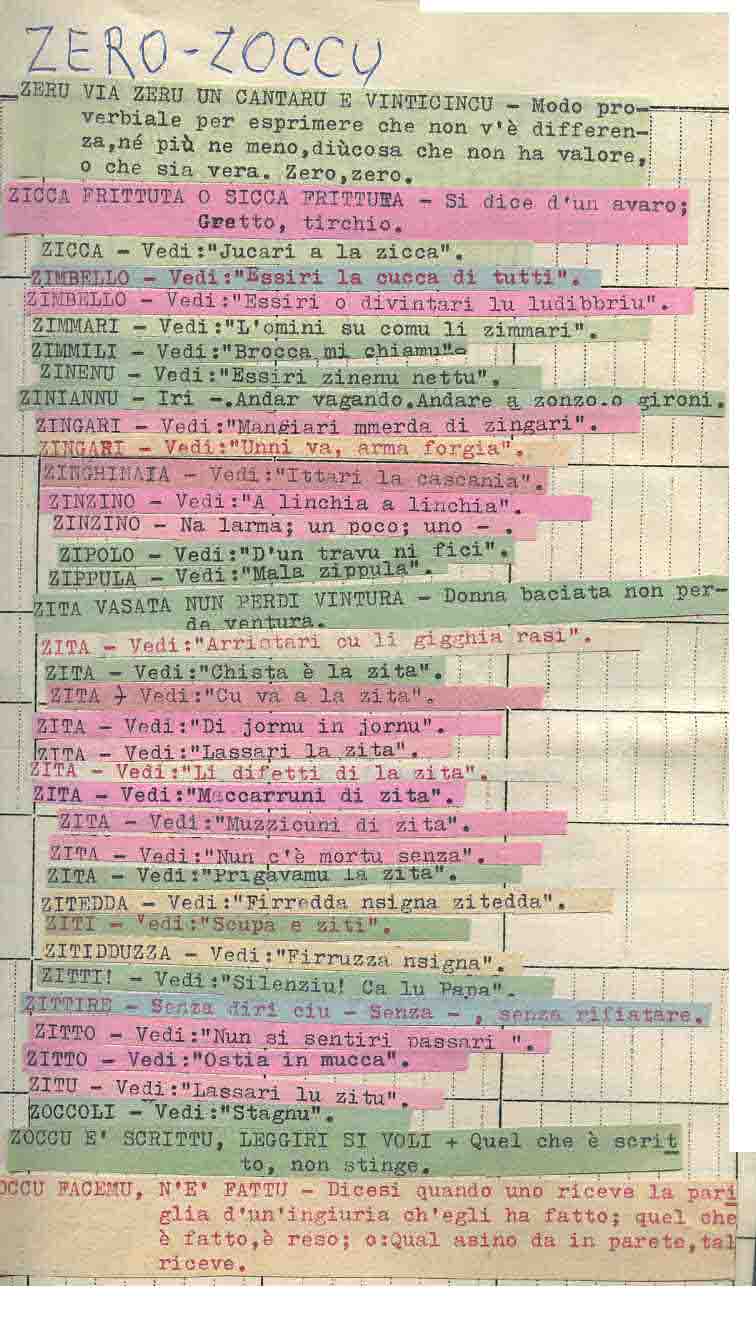 ZERO-ZOCCU
ZERU VIA ZERU UN CANTARU E VINTICINCU - Modo pro-
verbiale per esprimere che non v'è differen-
za,né più ne meno,diùcosa che non ha valore,
o che sia vera. Zero,zero.
ZICCA FRITTUTA O SICCA FRITTURA - Si dice d'un avaro;
Gretto, tirchio.
ZICCA - Vedi:"Jucari a la zicca".
ZIMBELLO - Vedi:"Essiri la cucca di tutti".
ZIMBELLO - Vedi:"Essiri o divintari lu ludibbriu".
ZIMMARI - Vedi:"L'omini su comu li zimmari".
ZIMMILI - Vedi:"Brocca mi chiamu"-
ZINENU - Vedi:"Essiri zinenu nettu".
ZINIANNU - Iri -.Andar vagando.Andare a zonzo.o gironi.
ZINGARI - Vedi:"Mangiari mmerda di zingari".
ZINGARI - Vedi:"Unni va, arma forgia".
ZINGHINAIA - Vedi:"Ittari la cascania".
ZINZINO - Vedi:"A linchia a linchia".
ZINZINO - Na larma; un poco; uno - .
ZIPOLO - Vedi:"D'un travu ni fici".
ZIPPULA - Vedi:"Mala zippula".
ZITA VASATA NUN PERDI VINTURA - Donna baciata non per-
de ventura.
ZITA - Vedi:"Arristari cu li gigghia rasi".
ZITA - Vedi:"Chista è la zita".
ZITA - Vedi:"Cu va a la zita".
ZITA - Vedi:"Di jornu in jornu".
ZITA - Vedi:"Lassari la zita".
ZITA - Vedi:"Li difetti di la zita".
ZITA - Vedi:"Maccarruni di zita".
ZITA - Vedi:"Muzzicuni di zita".
ZITA - Vedi:"Nun c'è mortu senza".
ZITA - Vedi:"Prigavamu la zita".
ZITEDDA - Vedi:"Firredda nsigna zitedda".
ZITI - Vedi:"Scupa e ziti".
ZITIDDUZZA - Vedi:"Firruzza nsigna".
ZITTI! - Vedi:"Silenziu! Ca lu Papa".
ZITTIRE - Senza diri ciu - Senza - , senza rifiatare.
ZITTO - Vedi:"Nun si sentiri passari ".
ZITTO - Vedi:"Ostia in mucca".
ZITU - Vedi:"Lassari lu zitu".
ZOCCOLI - Vedi:"Stagnu".
ZOCCU E' SCRITTU, LEGGIRI SI VOLI + Quel che è scrit
to, non stinge.
OCCU FACEMU, N'E' FATTU - Dicesi quando uno riceve la pari
glia d'un'ingiuria ch'egli ha fatto; quel che
è fatto,è reso; o:Qual asino da in parete,tal
riceve.